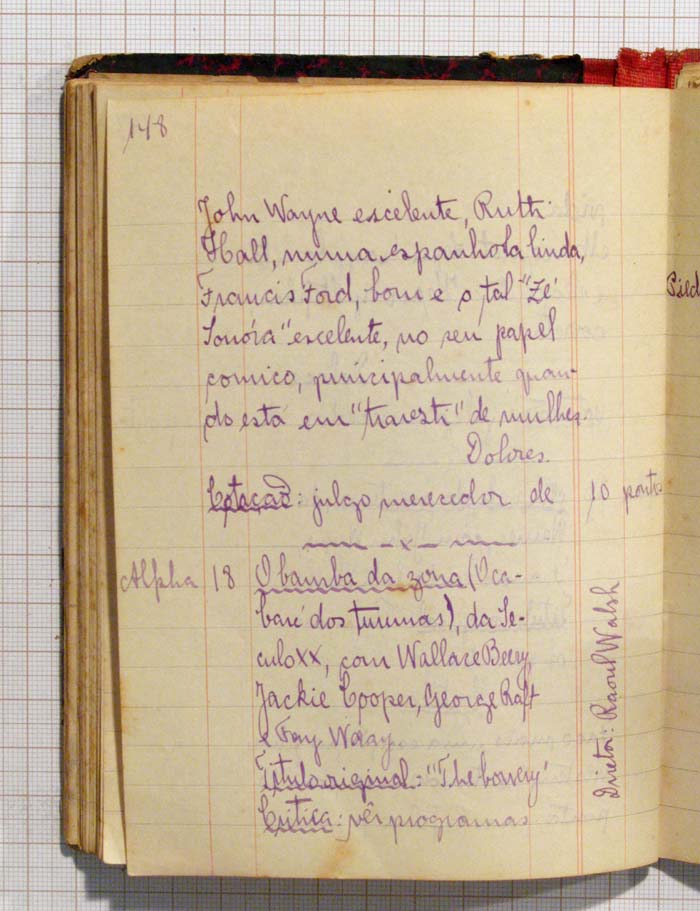 148
John Wayne escelente, Ruth
Hall, numa espanhola linda,
Francis Ford, bom e o tal "Zé
Sonóra" escelente, no seu papel
comico, principalmente quan-
do está em "travesti" de mulher.
Dolores.
Cotação: julgo merecedor de 10 pontos
— x —
Alpha 18 O bamba da zona (O ca-
baré dos turunas), da Se-
culo XX, com Wallace Beery,
Jackie Cooper, George Raft
e Fay Wray
Titulo original: "The bowery"
Critica: vêr programas
Diretor: Raoul Walsh